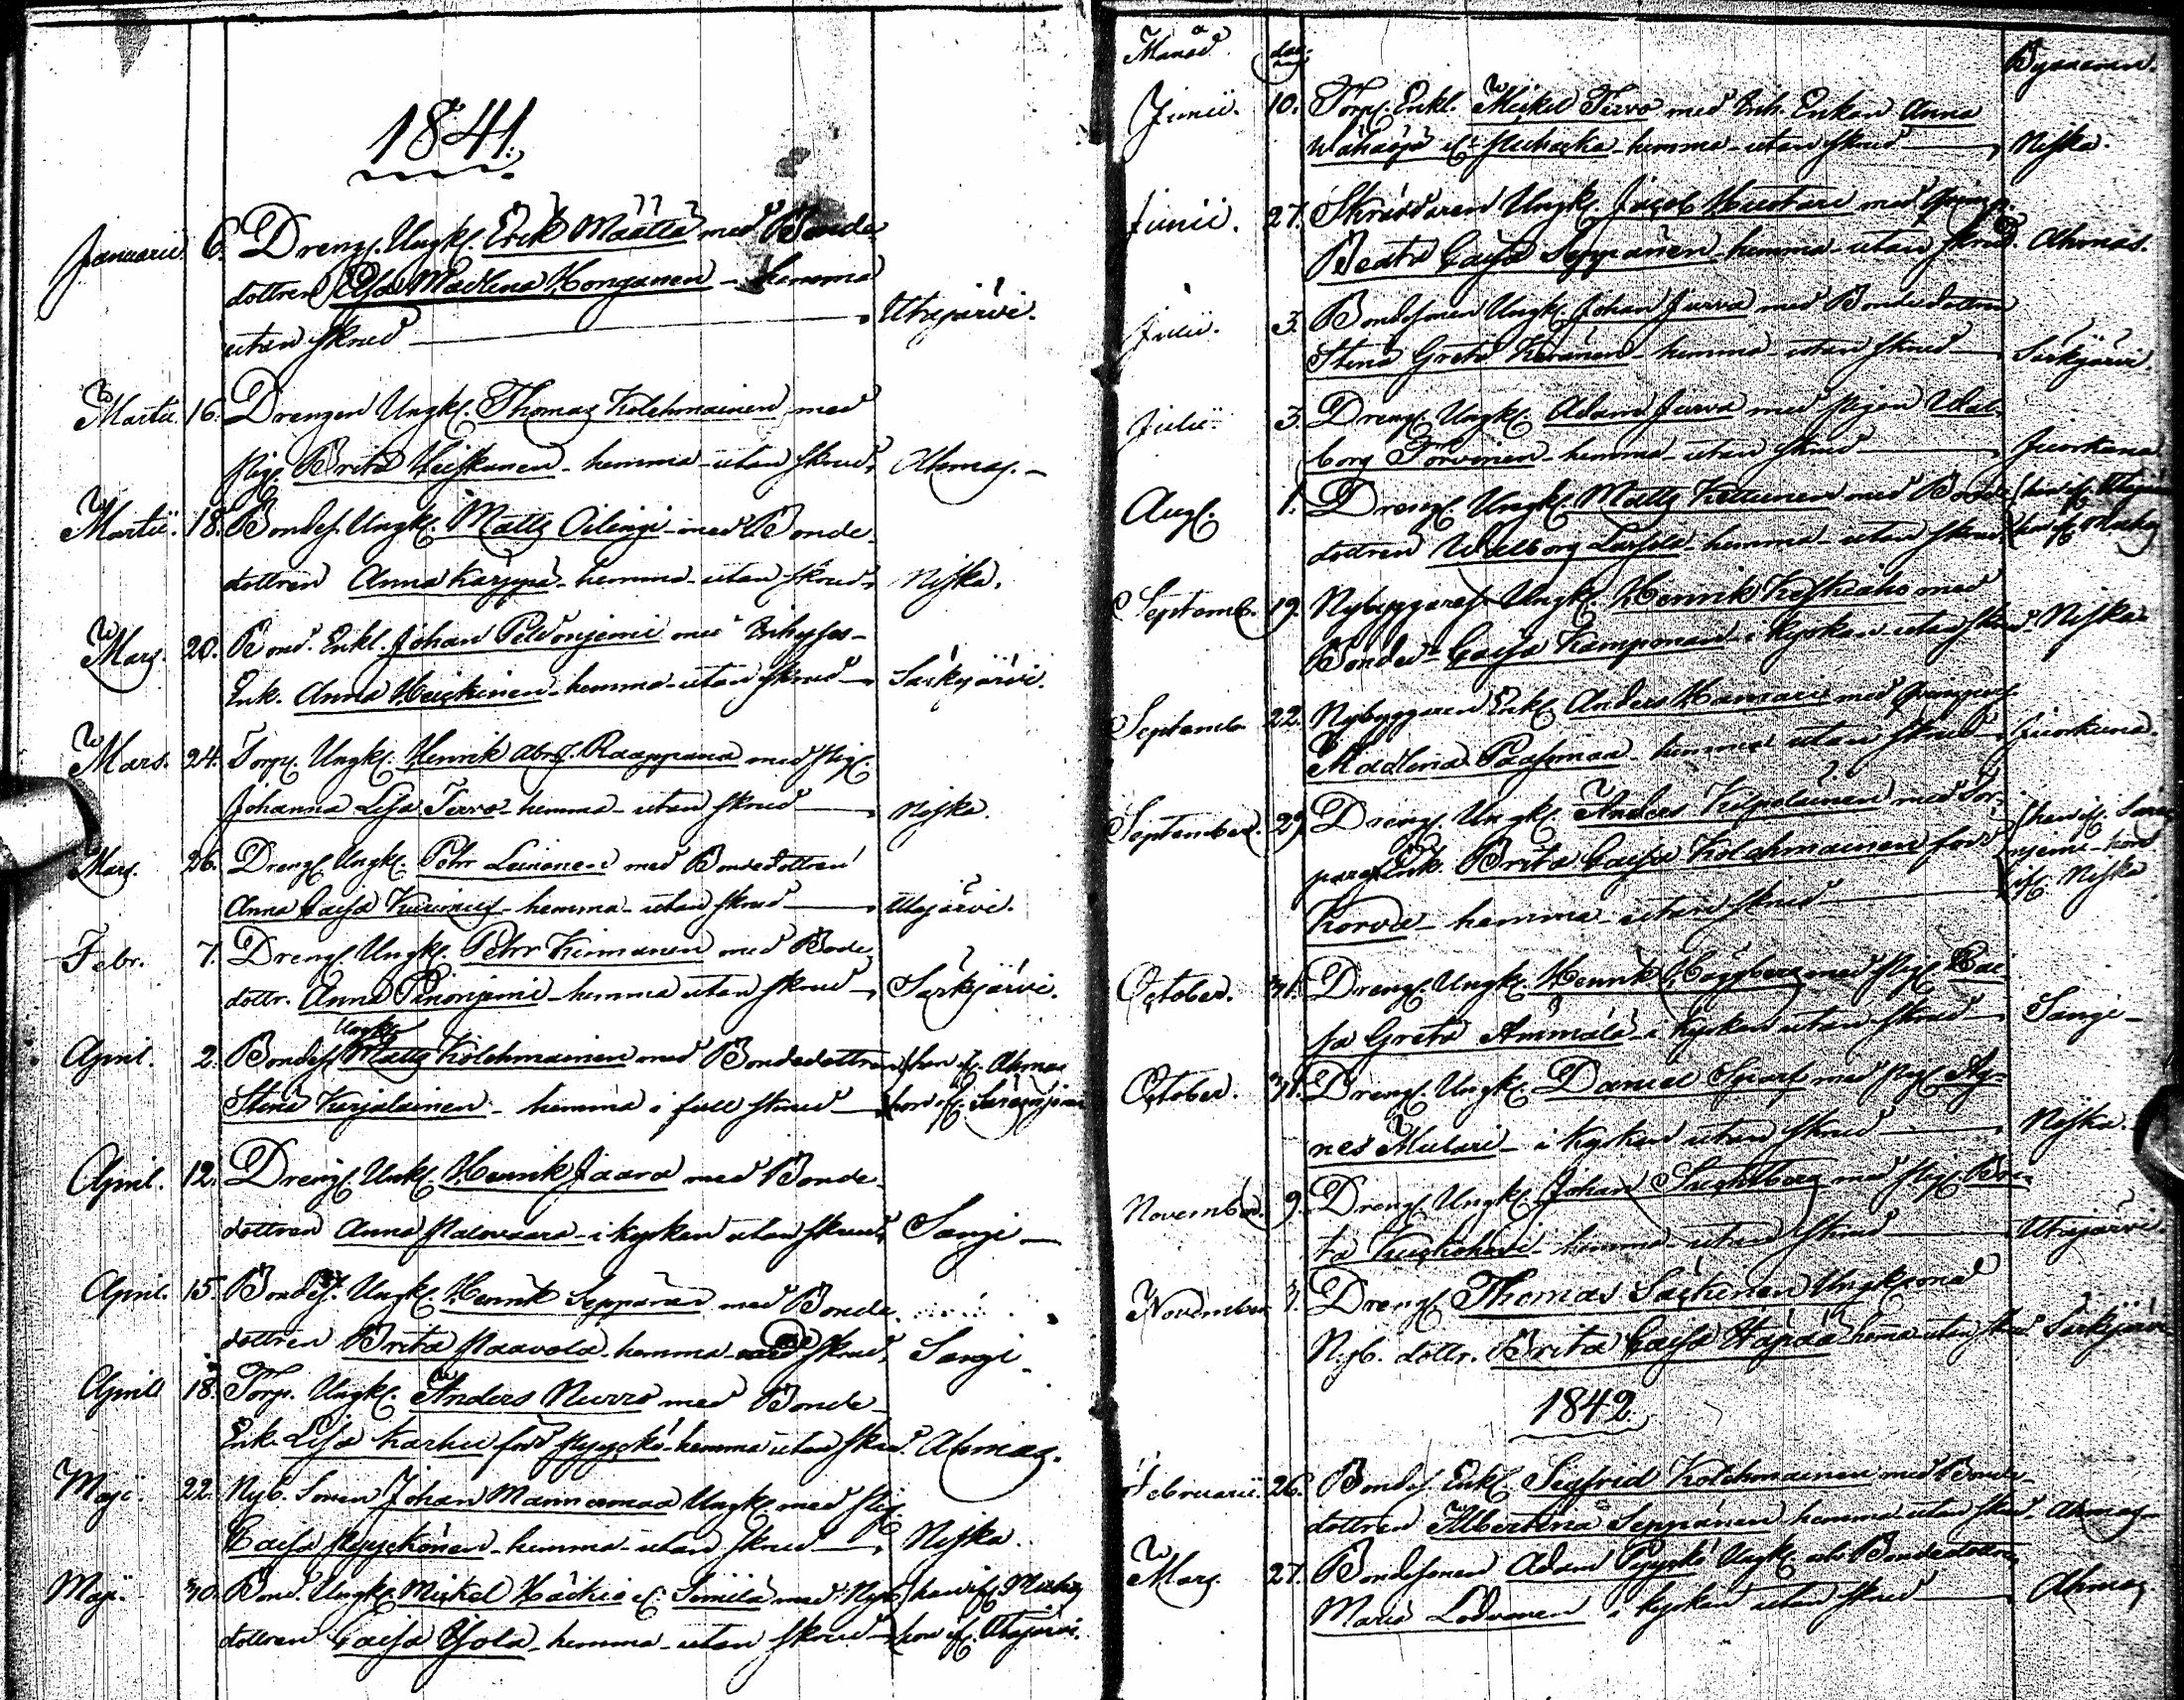 1841.
Januarii 6. Drengs. Ungk. Erik Määttä med Bonde
dottren Elsa Madlena Honganen - hemma
utan skrud Utajärvi.
Martii. 16. Drengen Ungk. Thomas Kolehmainen med
pig. Brita Heiskanen - hemma - utan skrud, Ahmas. -
Martii. 18. Bondes. Ungk. Matts Oilingi - med Bonde-
dottren Anna Karppa - hemma - utan skrud, Niska.
Mars. 20. Bond. Enkl. Johan Peldoniemi med Inhyses-
Enk. Anna Heickinen - hemma - utan skrud Särkijärvi.
Mars. 24. Torp. Ungk. Henrik Abrs. Raappana med pig.
Johanna Lisa Tervo - hemma - utan skrud Niska.
Mars. 26. Drengs. Ungk. Petr Leinonen med Bondedottren
Anna Caisa - hemma - utan skrud Utajärvi.
Febr. 7. Drengs. Ungk. Petr Keinänen med Bonde
dottr. Anna Pinoniemi - hemma utan skrud Särkijärvi.
Ungk.
April. 2. Bondes. Matts Kolehmainen med Bondedottren han if. Ahmas
Stina Karjalainen - hemma i full skrud hon if.
April. 12. Drengs. Unk. Henrik Jaara med Bonde-
dottren Anna Palovaara - i kyrkan utan skrud, Sangi
April. 15. Bondes. Ungk. Henrik Seppänen med Bonde
dottren Brita Paavola - hemma - skrud, Sangi
April 18. Torp. Ungk. Anders Nurro med Bonde
Enk. Lisa Karhu född Pyyckö - hemma utan skrud. Ahmas.
Maji. 22. Nyb. Sonen Johan Mannermaa Ungk. med pig.
Caisa Pyyckönen - hemma - utan skrud Niska.
Maji. 30. Bond. Ungk. Mickel Häckio if. Similä med Nyb. han if. Muhos
dottren Caisa Ojola - hemma - utan skrud hon if. Utajärvi.
Månad. dag. Byanamn.
Junii. 10. Torp. Enkl. Mickel Tervo med Inh. Enkan Anna
Wähäoja if. - hemma - utan skrud Niska.
Junii. 27. Skräddaren Ungk. Jacob Huotari med
Beata Caisa Seppänen - hemma - utan skrud. Ahmas.
Julii. 3. Bondesonen Ungk. Johan Jurva med Bondedottren
Stina Greta Keränen - hemma - utan skrud Särkijärvi.
Julii. 3. Drengs. Ungk. Adam Jurva med pigan Wal-
borg Torvinen - hemma - utan skrud Juorkuna
Augs. 1. Drengs. Ungk. Matts Kettunen med Bonde han if. Utajärvi
dottren Walborg - hemma - utan skrud hon if. Muhos
Septemb. 19. Nybyggares. Ungk. Henrik Keskiaho med
Bonded. Caisa Kamponen i kyrkan - utan skrud. Niska
Septemb. 22. Nybyggaren Enkl. Anders Hamari med
Madlena - hemma utan skrud Juorkuna.
September. 29. Drengs. Ungk. Anders Kilpeläinen med Tor- han if.
pares Enk. Brita Caisa Kolehmainen född niemi - hon
Korva - hemma - utan skrud if. Niska
October. 31. Drengs. Ungk. Henrik Höggberg med pig. Cai-
sa Greta Ammälä - i kyrkan utan skrud Sangi -
October. 31. Drengs. Ungk. Daniel med pig. Ag-
nes Mulari - i kyrkan utan skrud Niska.
November. 9. Drengs. Ungk. Johan med pig. Bri-
ta - hemma - utan skrud Utajärvi
November Drengs. Thomas Säckinen Ungk. med
Nyb. dottr. Brita Caisa hema utan skrud. Särkijärvi
1842.
Februarii. 26. Bondes. Enkl. Sigfrid Kolehmainen med Bonde-
dottren Albertina Seppänen hemma utan skrud. Ahmas
Mars. 27. Bondesonen Adam Pyyckö Ungk. och Bondedottren
Maria Lodvonen i kyrkan utan skrud Ahmas